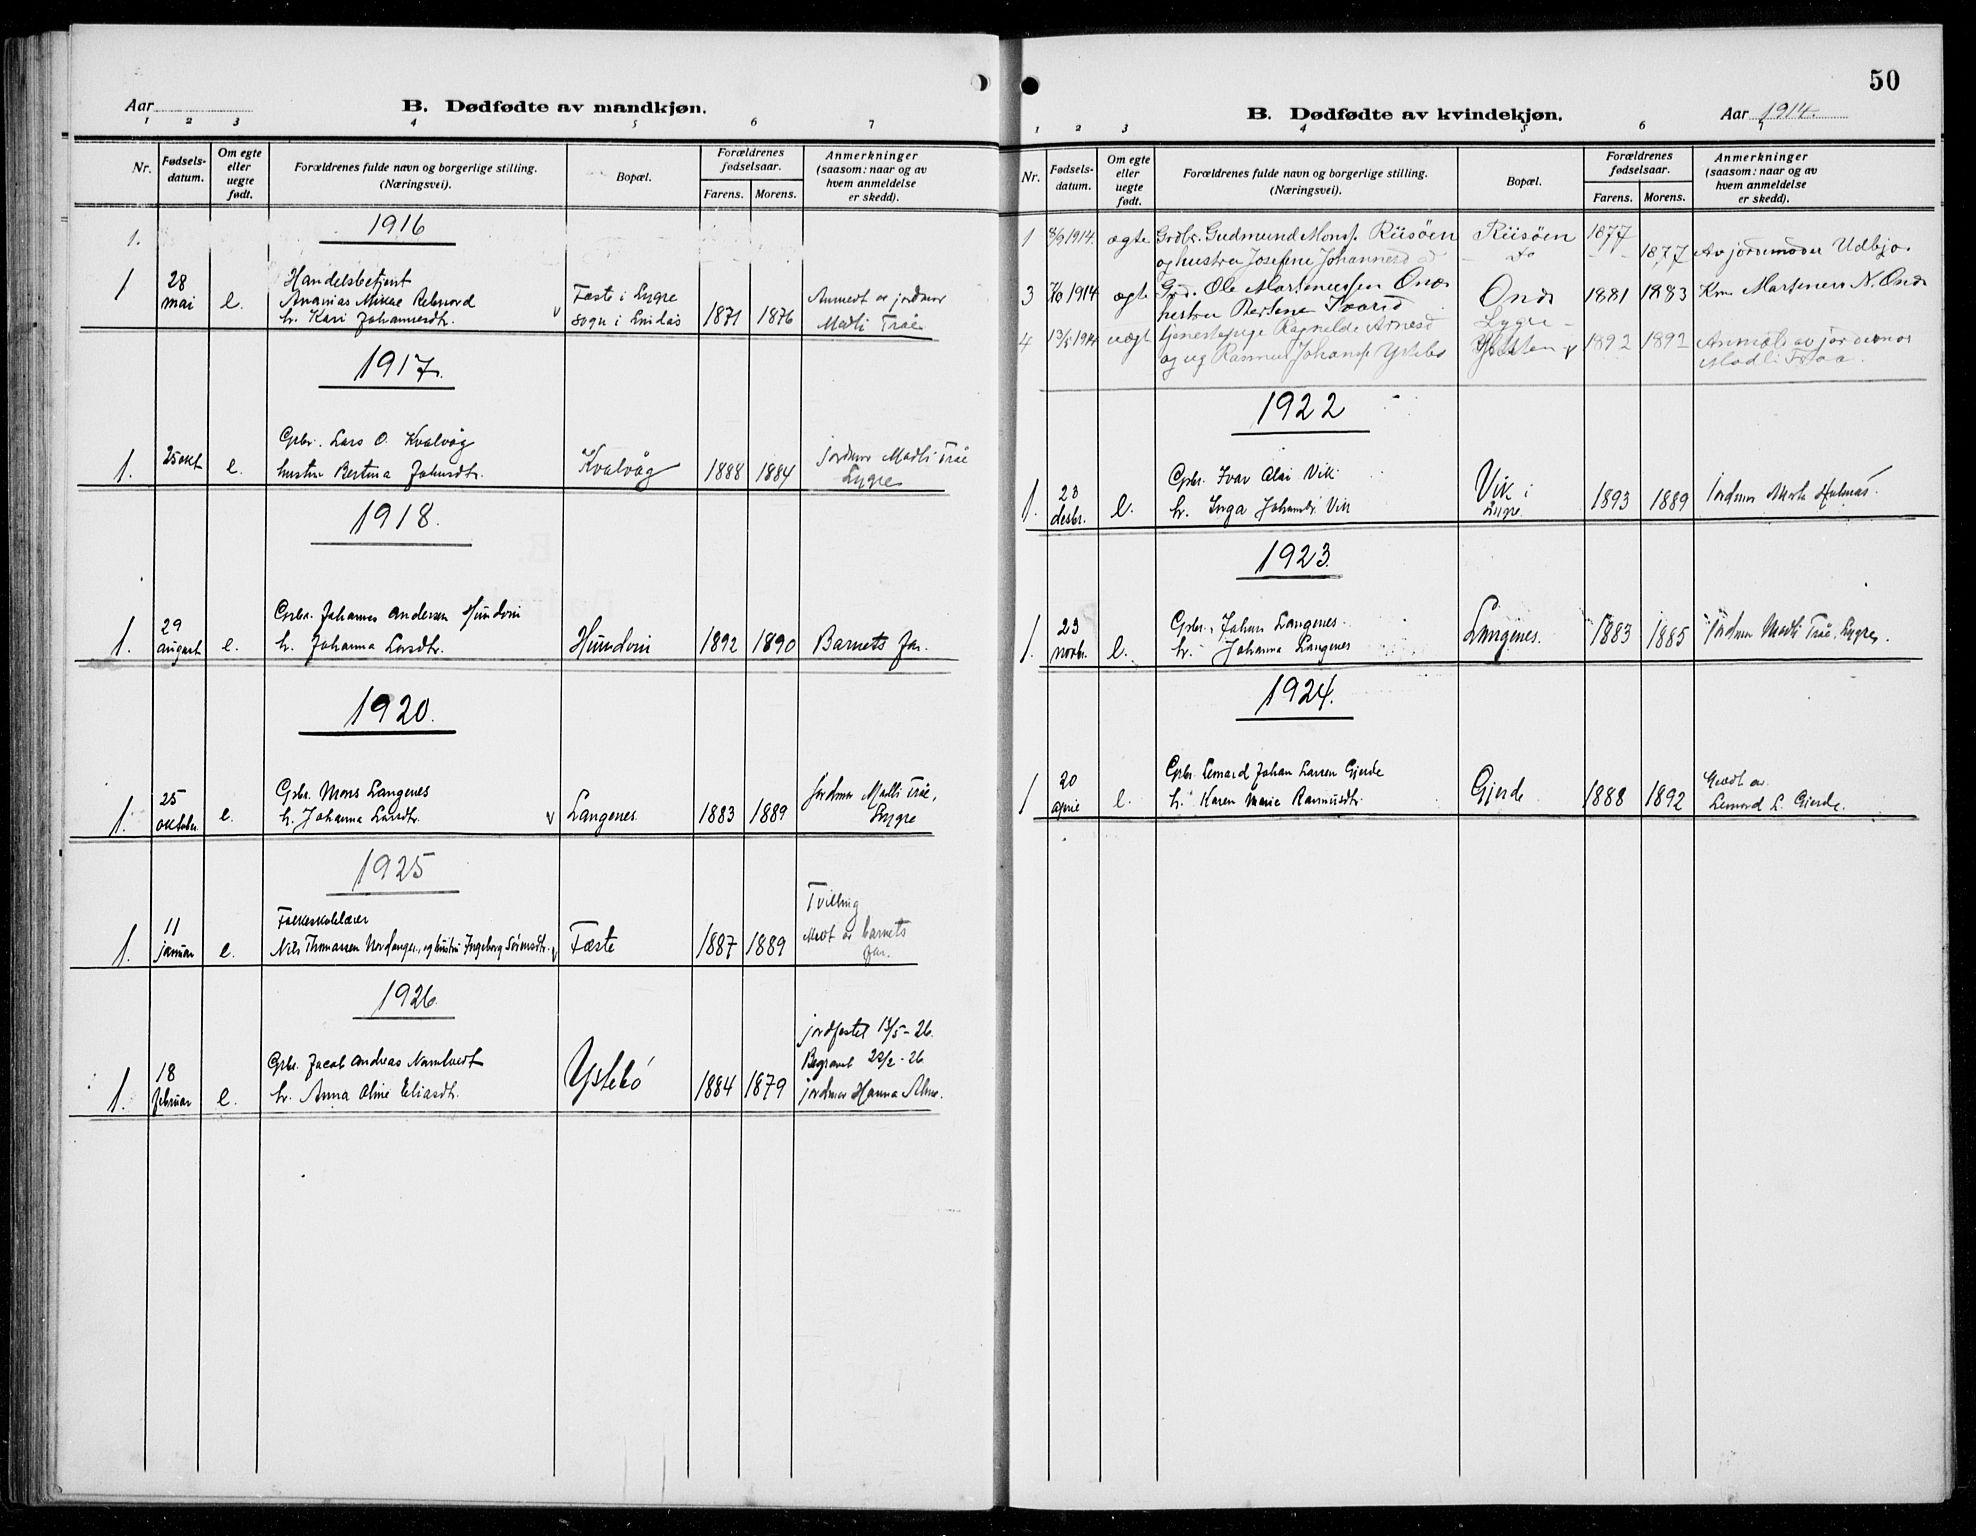 Aar
B. Dødfødte av mandkjøn.
1 2 3 4 5 6 7
Nr.
Fødsels-
datum.
Om egte
eller
uegte
født.
Forældrenes fulde navn og borgerlige stilling.
(Næringsvei).
Bopæl.
Forældrenes
fødselsaar.
Farens. Morens.
Anmerkninger
(saasom: naar og av
hvem anmeldelse
er skedd).
1916
1.
1 28 mai e.
Handelsbetjent
Ananias Mikal
h. Kari Johannesdtr.
Fæste i Lygre
sogn i Lindås
1871 1876
Anmeldt av jordmor
Madli Tråe
1917.
1. 25 okt e.
Grbr. Lars O. Kvalvåg
hustru Bertina Johnsdtr.
Kvalvåg
1888 1884
jordmor Madli Tråe
Lygre
1918.
1. 29 august e.
Grbr. Johannes Andersen Hundvin
h. Johanna Larsdtr.
Hundvin
1892 1890
Barnets far.
1920.
1. 25 oktober e.
Grbr. Mons Langenes
h. Johanna Larsdtr.
Langenes
1883 1889
Jordmor Madli Tråe,
Lygre
1925
1. 11 januar e.
Folkeskolelærer
Nils Thomassen Nordanger, og hustru Ingeborg Sørensdtr.
Fæste
1887 1889
Tvilling
Meldt av barnets
far.
1926.
1. 18 februar e.
Grbr. Jacob Andreas Namtvedt
h. Anna Oline Eliasdtr.
Ystebø
1884 1879
jordfestet 13/5-26.
Begravet 22/2-26
jordmor Hanna
50
B. Dødfødte av kvindekjøn.
Aar 1914.
1 2 3 4 5 6 7
Nr.
Fødsels-
datum.
Om egte
eller
uegte
født.
Forældrenes fulde navn og borgerlige stilling.
(Næringsvei).
Bopæl.
Forældrenes
fødselsaar.
Farens. Morens.
Anmerkninger
(saasom: naar og av
hvem anmeldelse
er skedd).
1 1914. ægte Grdbr. Gudmund Mons. Riisöen Riisöen 1877
og hustru Josefine Johannesd 1877 Av jordemoder
3 1914 ægte Ole Martenussen Ones Ones 1881 1883 Martenus N. Ones
hustru Bertine
4 13/5 1914 uægt tjenestepige Ragnilde Arnesd Lygre
og ug Rasmus Johans. Ystebø 1892 1892 Anmeldt av jordemor
Madli Traa.
1922
1. 23 desbr. e.
Grbr. Ivar Olai Vik
h. Inga Johansdtr. Vik
Vik i
Lygre.
1893 1889
Jordmor Marta Hulmås.
1923.
1. 23 novbr. e.
Grbr. Johan Langenes.
h. Johanna Langenes
Langenes.
1883 1885
Jordmor Madli Tråe, Lygre.
1924.
1 20 april e.
Grbr. Lemard Johan Larsen Gjerde
h. Karen Marie Rasmusdtr.
Gjerde
1888 1892
Meldt av
Lemard L. Gjerde.